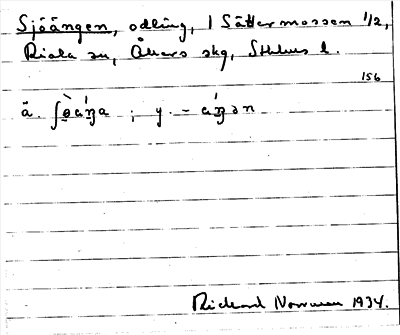 Sjöängen, odling, 1 Sättermossen 1/2,
Riala sn, Åkers skg, Sthlms l.
156
ä. ʃɵ̀aŋ́a ; y. – aŋ́ən
Rickard Norrman 1934.